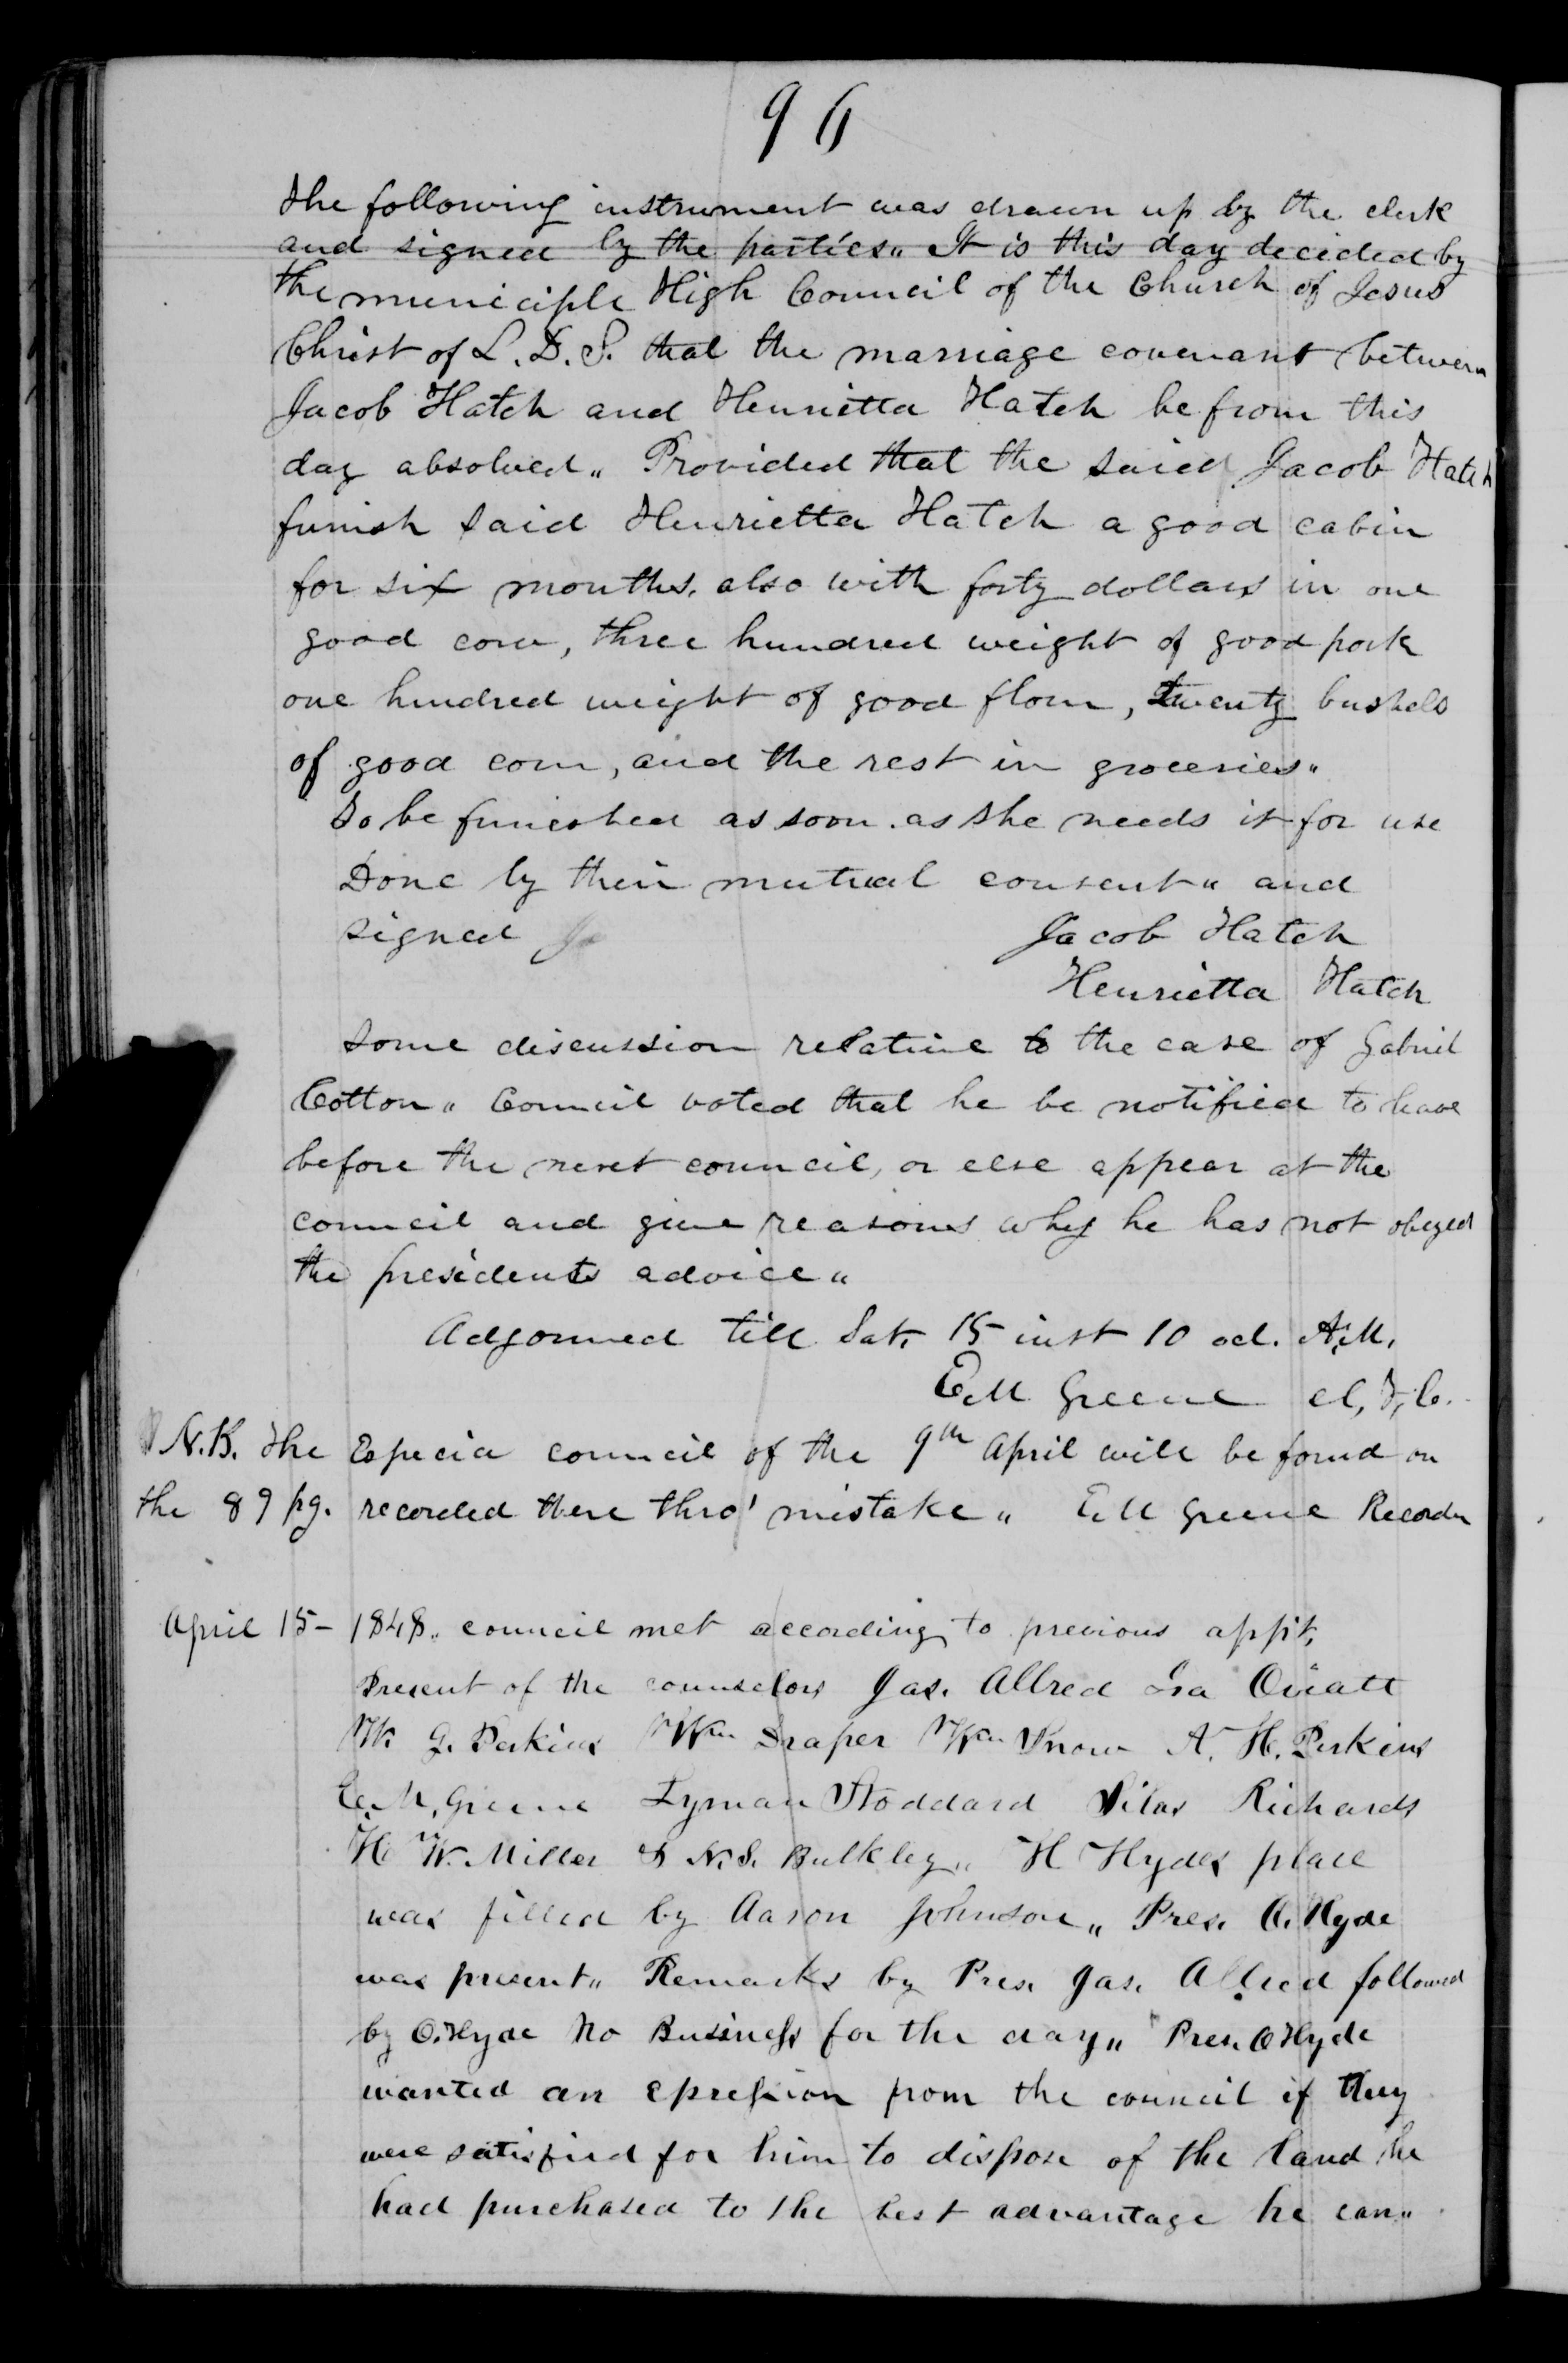 96
The following instrument was drawn up by the clerk
and signed by the parties„ It is this day decided by
the municiple High Council of the Church of Jesus
Christ of L. D. S. that the marriage covenant between
Jacob Hatch and Henrietta Hatch be from this
day absolved„ Provided that the saied Jacob Hatch
funish said Henrietta Hatch a good cabin
for six months, also with forty dollars in one
good cow, three hundred weight of good pork
one hundred weight of good flour, twenty bushels
of good corn, and the rest in groceries„
To be funished as soon as she needs it for use
Done by their mutual consent„ and
signed Jacob Hatch
Henrietta Hatch
Some discussion relative to the case of Gabriel
Cotton„ Council voted that he be notified to leave
before the next council, or else appear at the
council and give reasons why he has not obeyed
the presidents advice„
Adjourned till Sat. 15 inst 10 ocl. A.M.
E.M Greene cl, H, C.
N.B. The Especia council of the 9th April will be found on
the 89 pg. recorded there thro' mistake„ E. M Greene Recorder
April 15– 1848„ council met according to previous appt,
Present of the counselors Jas. Allred Ira Oviatt
W. G. Perkins Wm Draper Wm Snow A. H. Perkins
E. M. Greene Lyman Stoddard Silas Richards
H. W. Miller & N. S. Bulkley„ H Hydes place
was filled by Aaron Johnson„ Pres. O. Hyde
was present„ Remarks by Pres. Jas. Allred followed
by O. Hyde No Business for the day„ Pres. O Hyde
wanted an epression from the council if they
were satisfied for him to dispose of the land he
had purchased to the best advantage he can„